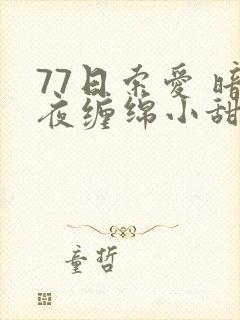 77日索爱 暗
夜缠绵小甜
童哲